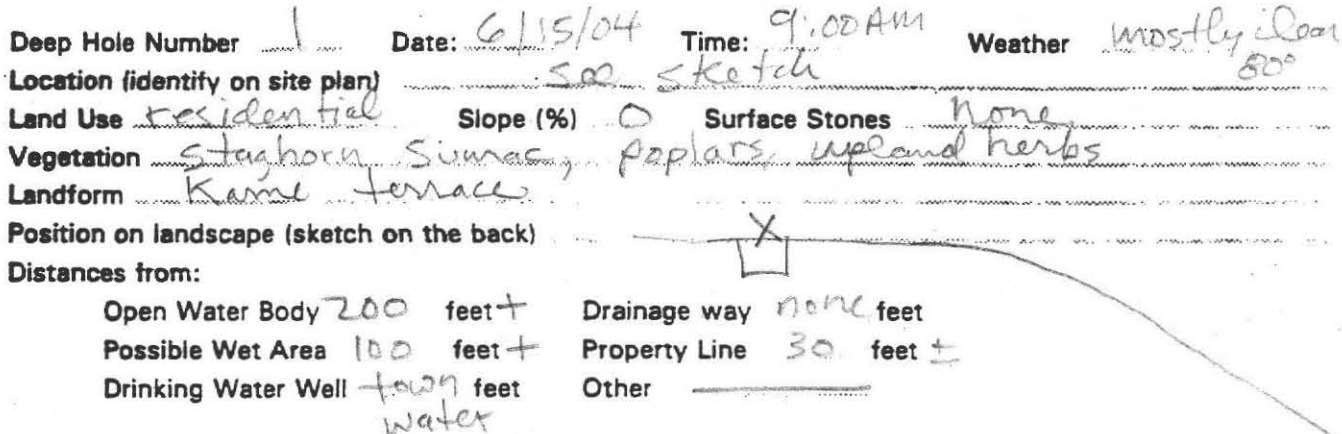 Deep Hole Number 1 Date: 6/15/04 Time: 9:00 AM Weather mostly clear
80°
Location (identify on site plan) see sketch
Land Use residential Slope (%) 0 Surface Stones none
Vegetation Staghorn Sumac, poplars, upland herbs
Landform Kame terrace
Position on landscape (sketch on the back) X
Distances from:
Open Water Body 200 feet + Drainage way none feet
Possible Wet Area 100 feet + Property Line 30 feet ±
Drinking Water Well town feet Other
water